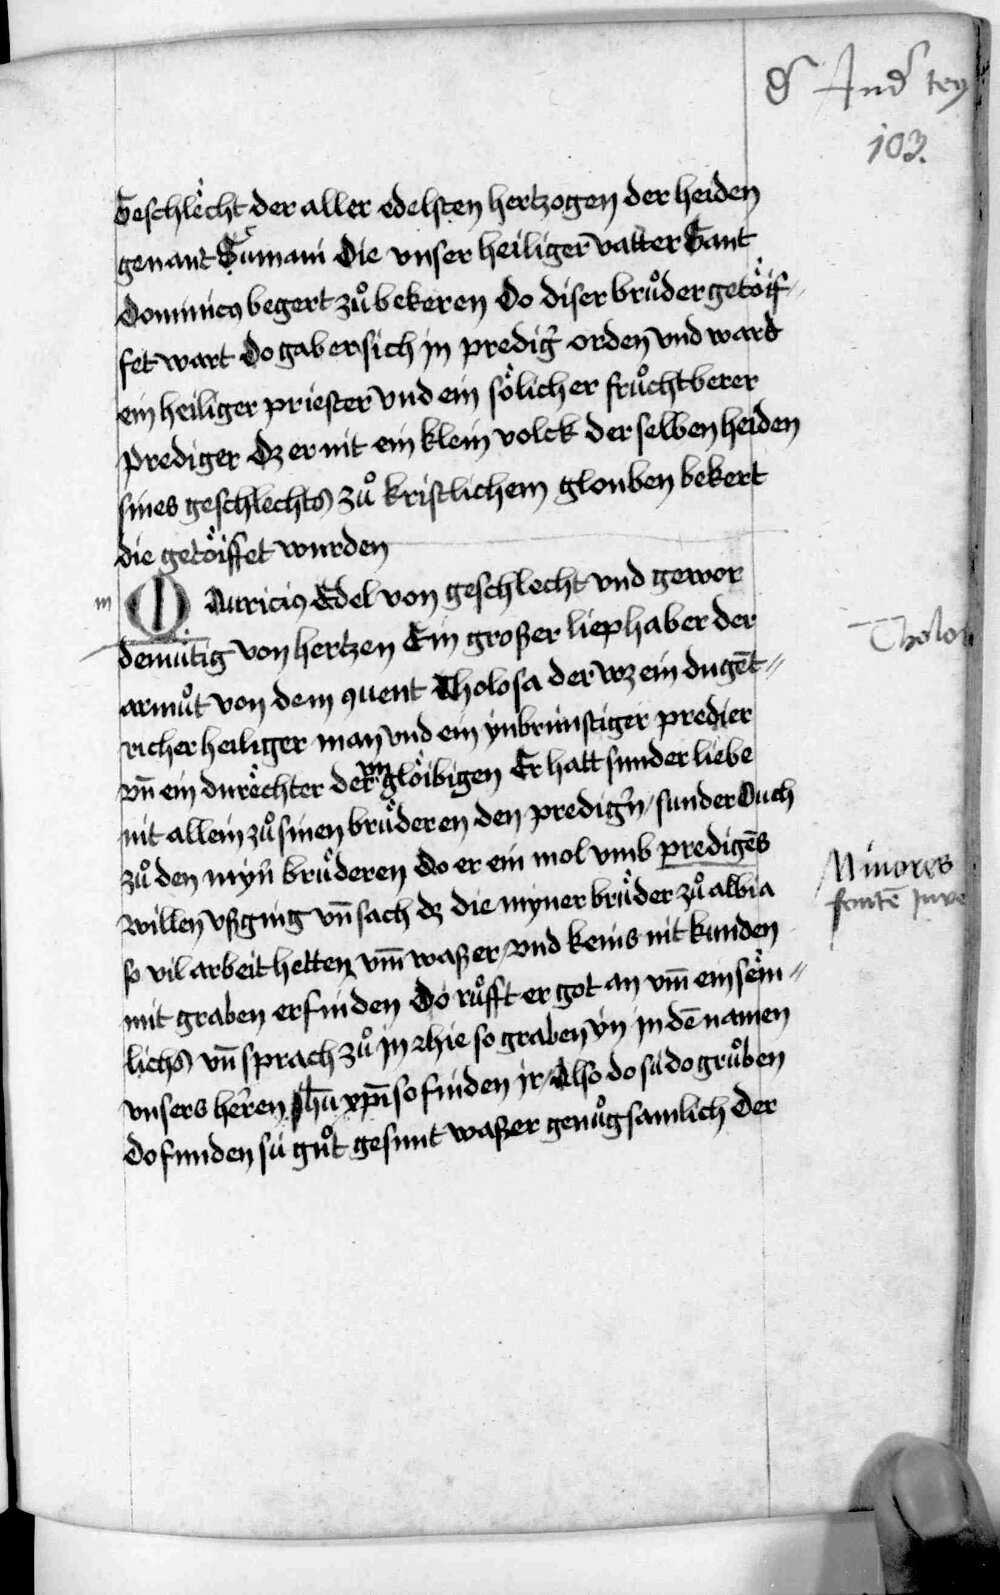 103.
Geschlẻcht der aller edelsten hertzogen der heiden
genant Cumani Die vnser heiliger vatter Sant
Dominicꝰ begert zuͦ bekeren Do diser bruͦder getoͤif⸗
fet wart Do gab er sich in predigͬ orden vnd ward
ein heiliger priester vnd ein soͤlicher fruͦchtberer
prediger Dz er nit ein klein volck der selben heiden
sines geschlechts zuͦ kristlichem glouben bekert
die getoͤiffet wurden
m
Mauriciꝰ Edel von geschlecht vnd gewor
demuͤtig von hertzen Ein großer liephaber der
armuͦt von dem ꝯuent Tholosa der wz ein dugēt⸗
richer heiliger man vnd ein ynbrúnstiger predier
vn̄ ein durehter der vnglöibigen Er hatt sunder liebe
nit allein zuͦ sinen bruͤderen den predigͬn / sunder Ouch
zuͦ den mynͬ bruͤderen Do er ein mol vmb predigēs
willen vßging vn̄ sach dz die myner bruͤder zuͦ albia
so vil arbeit hetten vm̄ waßer / vnd keins nit kunden
mit graben erfinden Do ruͦfft er got an vm̄ ein sem⸗
lichs vn̄ sprach zuͦ in Hie so graben yn in dē namen
vnsers heͬren Jhū xp̄i so finden ir / Also do sú do gruͦben
Do funden sú guͦt gesunt waßer genuͦgsamlich Der
Minores
fontē